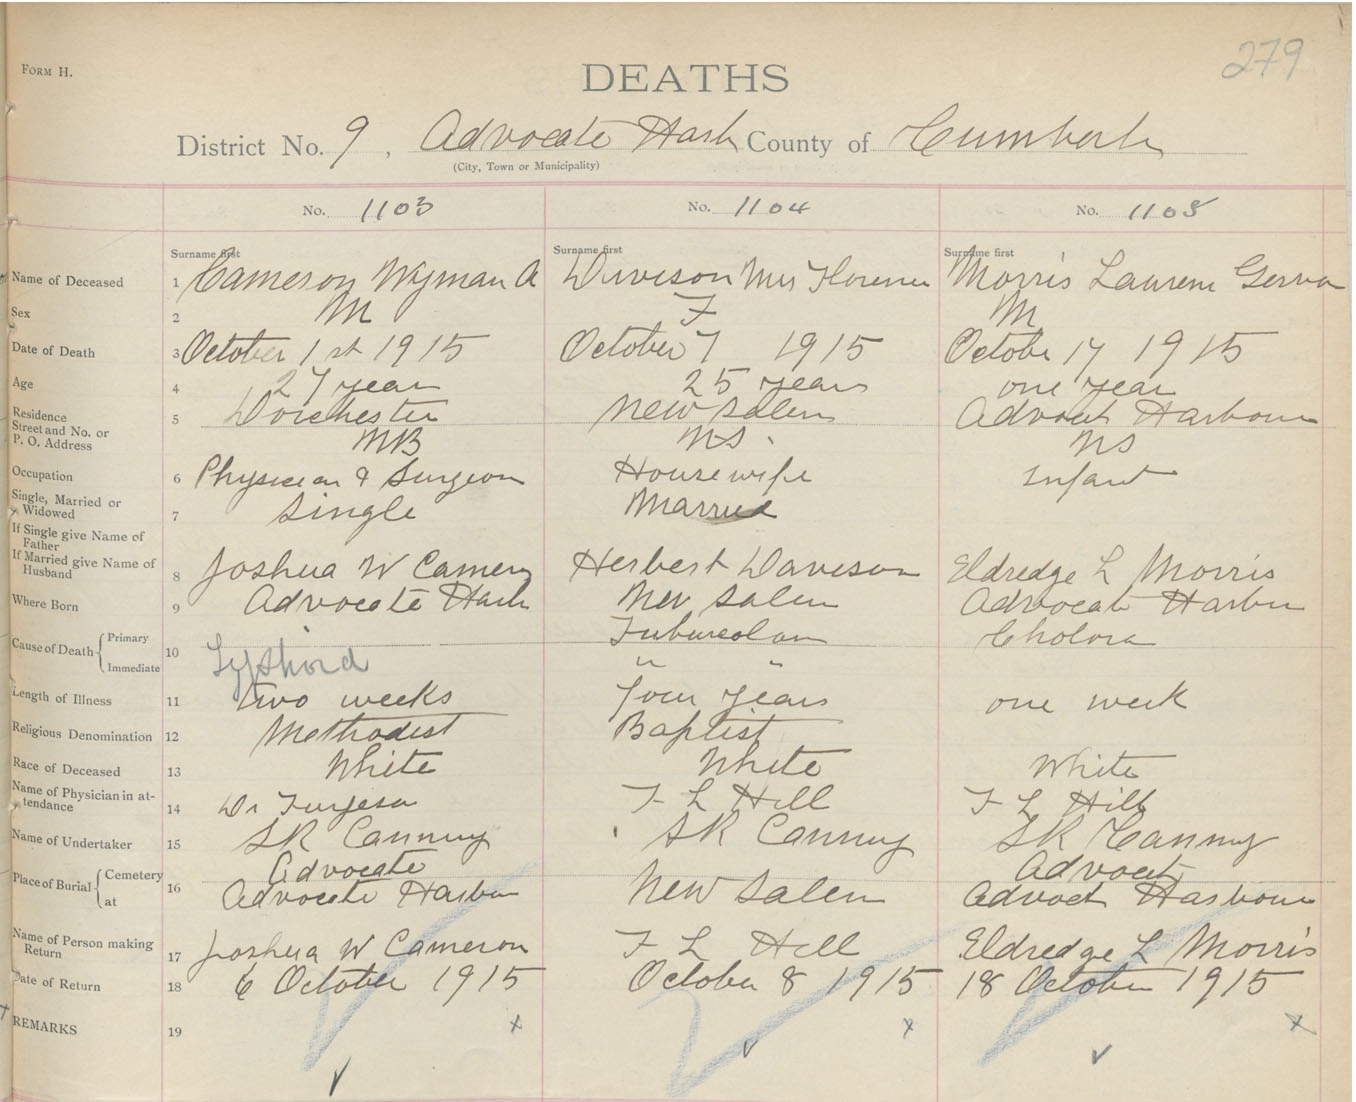 279
Form H.
DEATHS
District No. 9, Advocate Harb County of Cumberla
(City, Town or Municipality)
No. 1103 No. 1104 No. 1105
Surname first Surname first Surname first
Name of Deceased 1 Cameron Wyman A Davison Mrs Florence Morris Laurene
Sex 2 M F M
Date of Death 3 October 1st 1915 October 7 1915 October 17 1915
Age 4 27 years 25 years one year
Residence Street and No. or P. O. Address 5 Dorchester New Salem Advocate Harbour
NB NS NS
Occupation 6 Physician & Surgeon Housewife Infant
Single, Married or Widowed 7 Single Married
If Single give Name of Father
If Married give Name of Husband 8 Joshua W Cameron Herbert Davison Eldredge L Morris
Where Born 9 Advocate Harb New Salem Advocate Harbour
Cause of Death { Primary Tubercolan Cholora
Immediate 10 Typhoid " "
Length of Illness 11 two weeks four years one week
Religious Denomination 12 Methodist Baptist
Race of Deceased 13 White White White
Name of Physician in attendance 14 Dr F L Hill F L Hill
Name of Undertaker 15 SR Canning SR Canning SR Canning
Place of Burial { Cemetery Advocate Advocate
at 16 Advocate Harbour New Salem Advocate Harbour
Name of Person making Return 17 Joshua W Cameron F L Hill Eldredge L Morris
Date of Return 18 6 October 1915 October 8 1915 18 October 1915
REMARKS 19 x x x